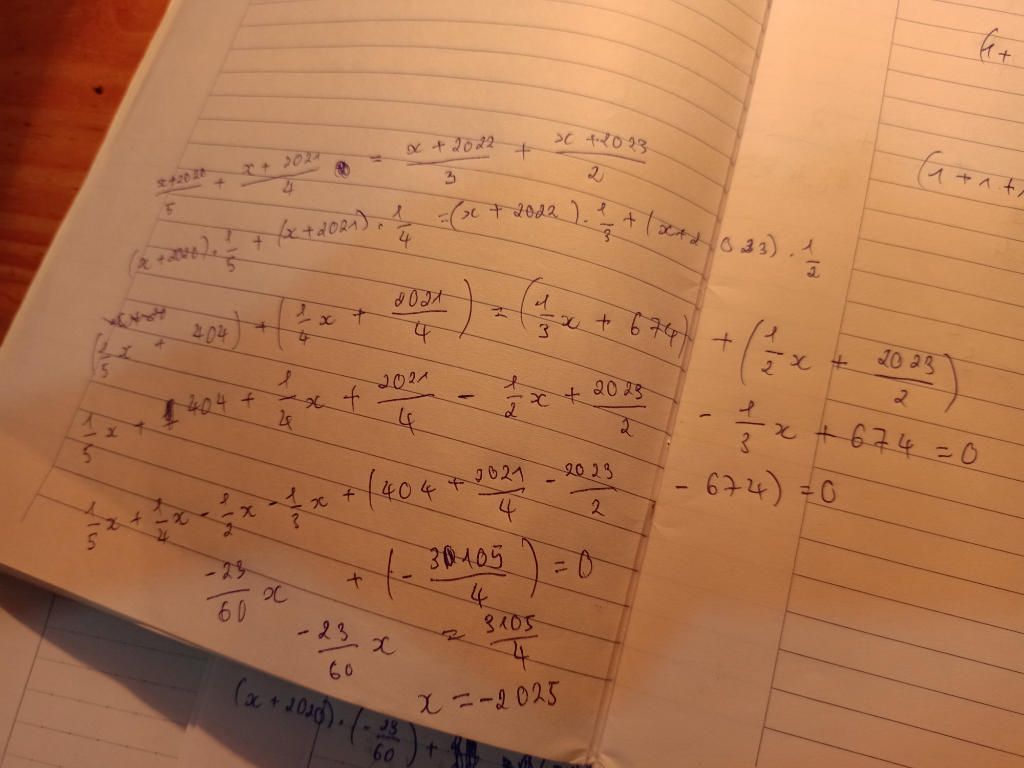 (x+2020)/5 + (x+2021)/4 = (x+2022)/3 + (x+2023)/2
(x+2020)·1/5 + (x+2021)·1/4 = (x+2022)·1/3 + (x+2023)·1/2
(1/5x + 404) + (1/4x + 2021/4) = (1/3x + 674) + (1/2x + 2023/2)
1/5x + 404 + 1/4x + 2021/4 - 1/2x + 2023/2 - 1/3x + 674 = 0
1/5x + 1/4x - 1/2x - 1/3x + (404 + 2021/4 - 2023/2 - 674) = 0
-23/60x + (-3105/4) = 0
-23/60x = 3105/4
x = -2025
(x+2020)·(-23/60) +
(1+
(1+1+